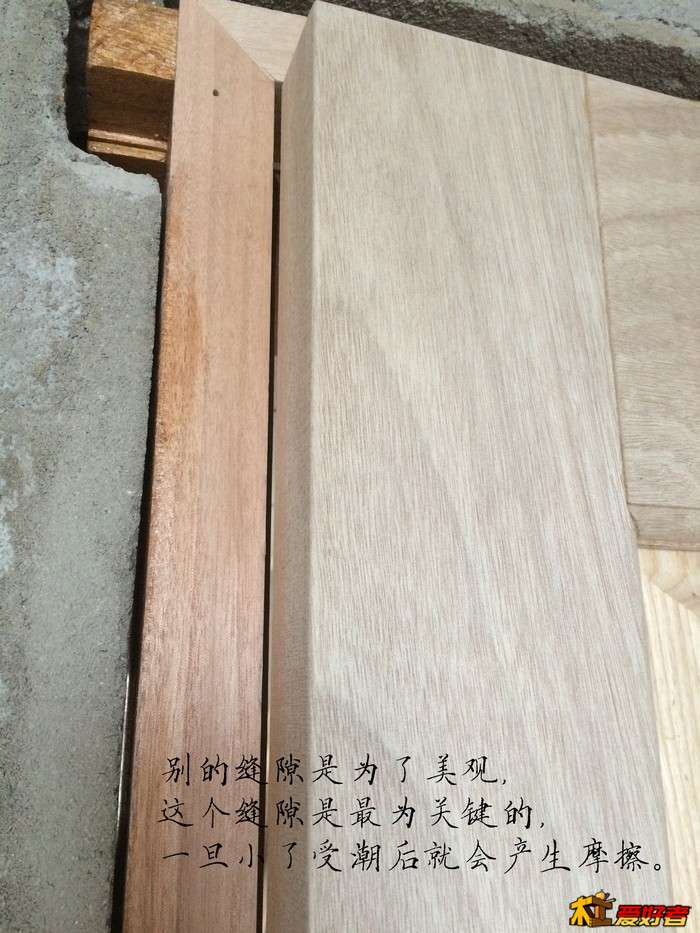 别的缝隙是为了美观,
这个缝隙是最为关键的,
一旦小了受潮后就会产生摩擦。
木工爱好者